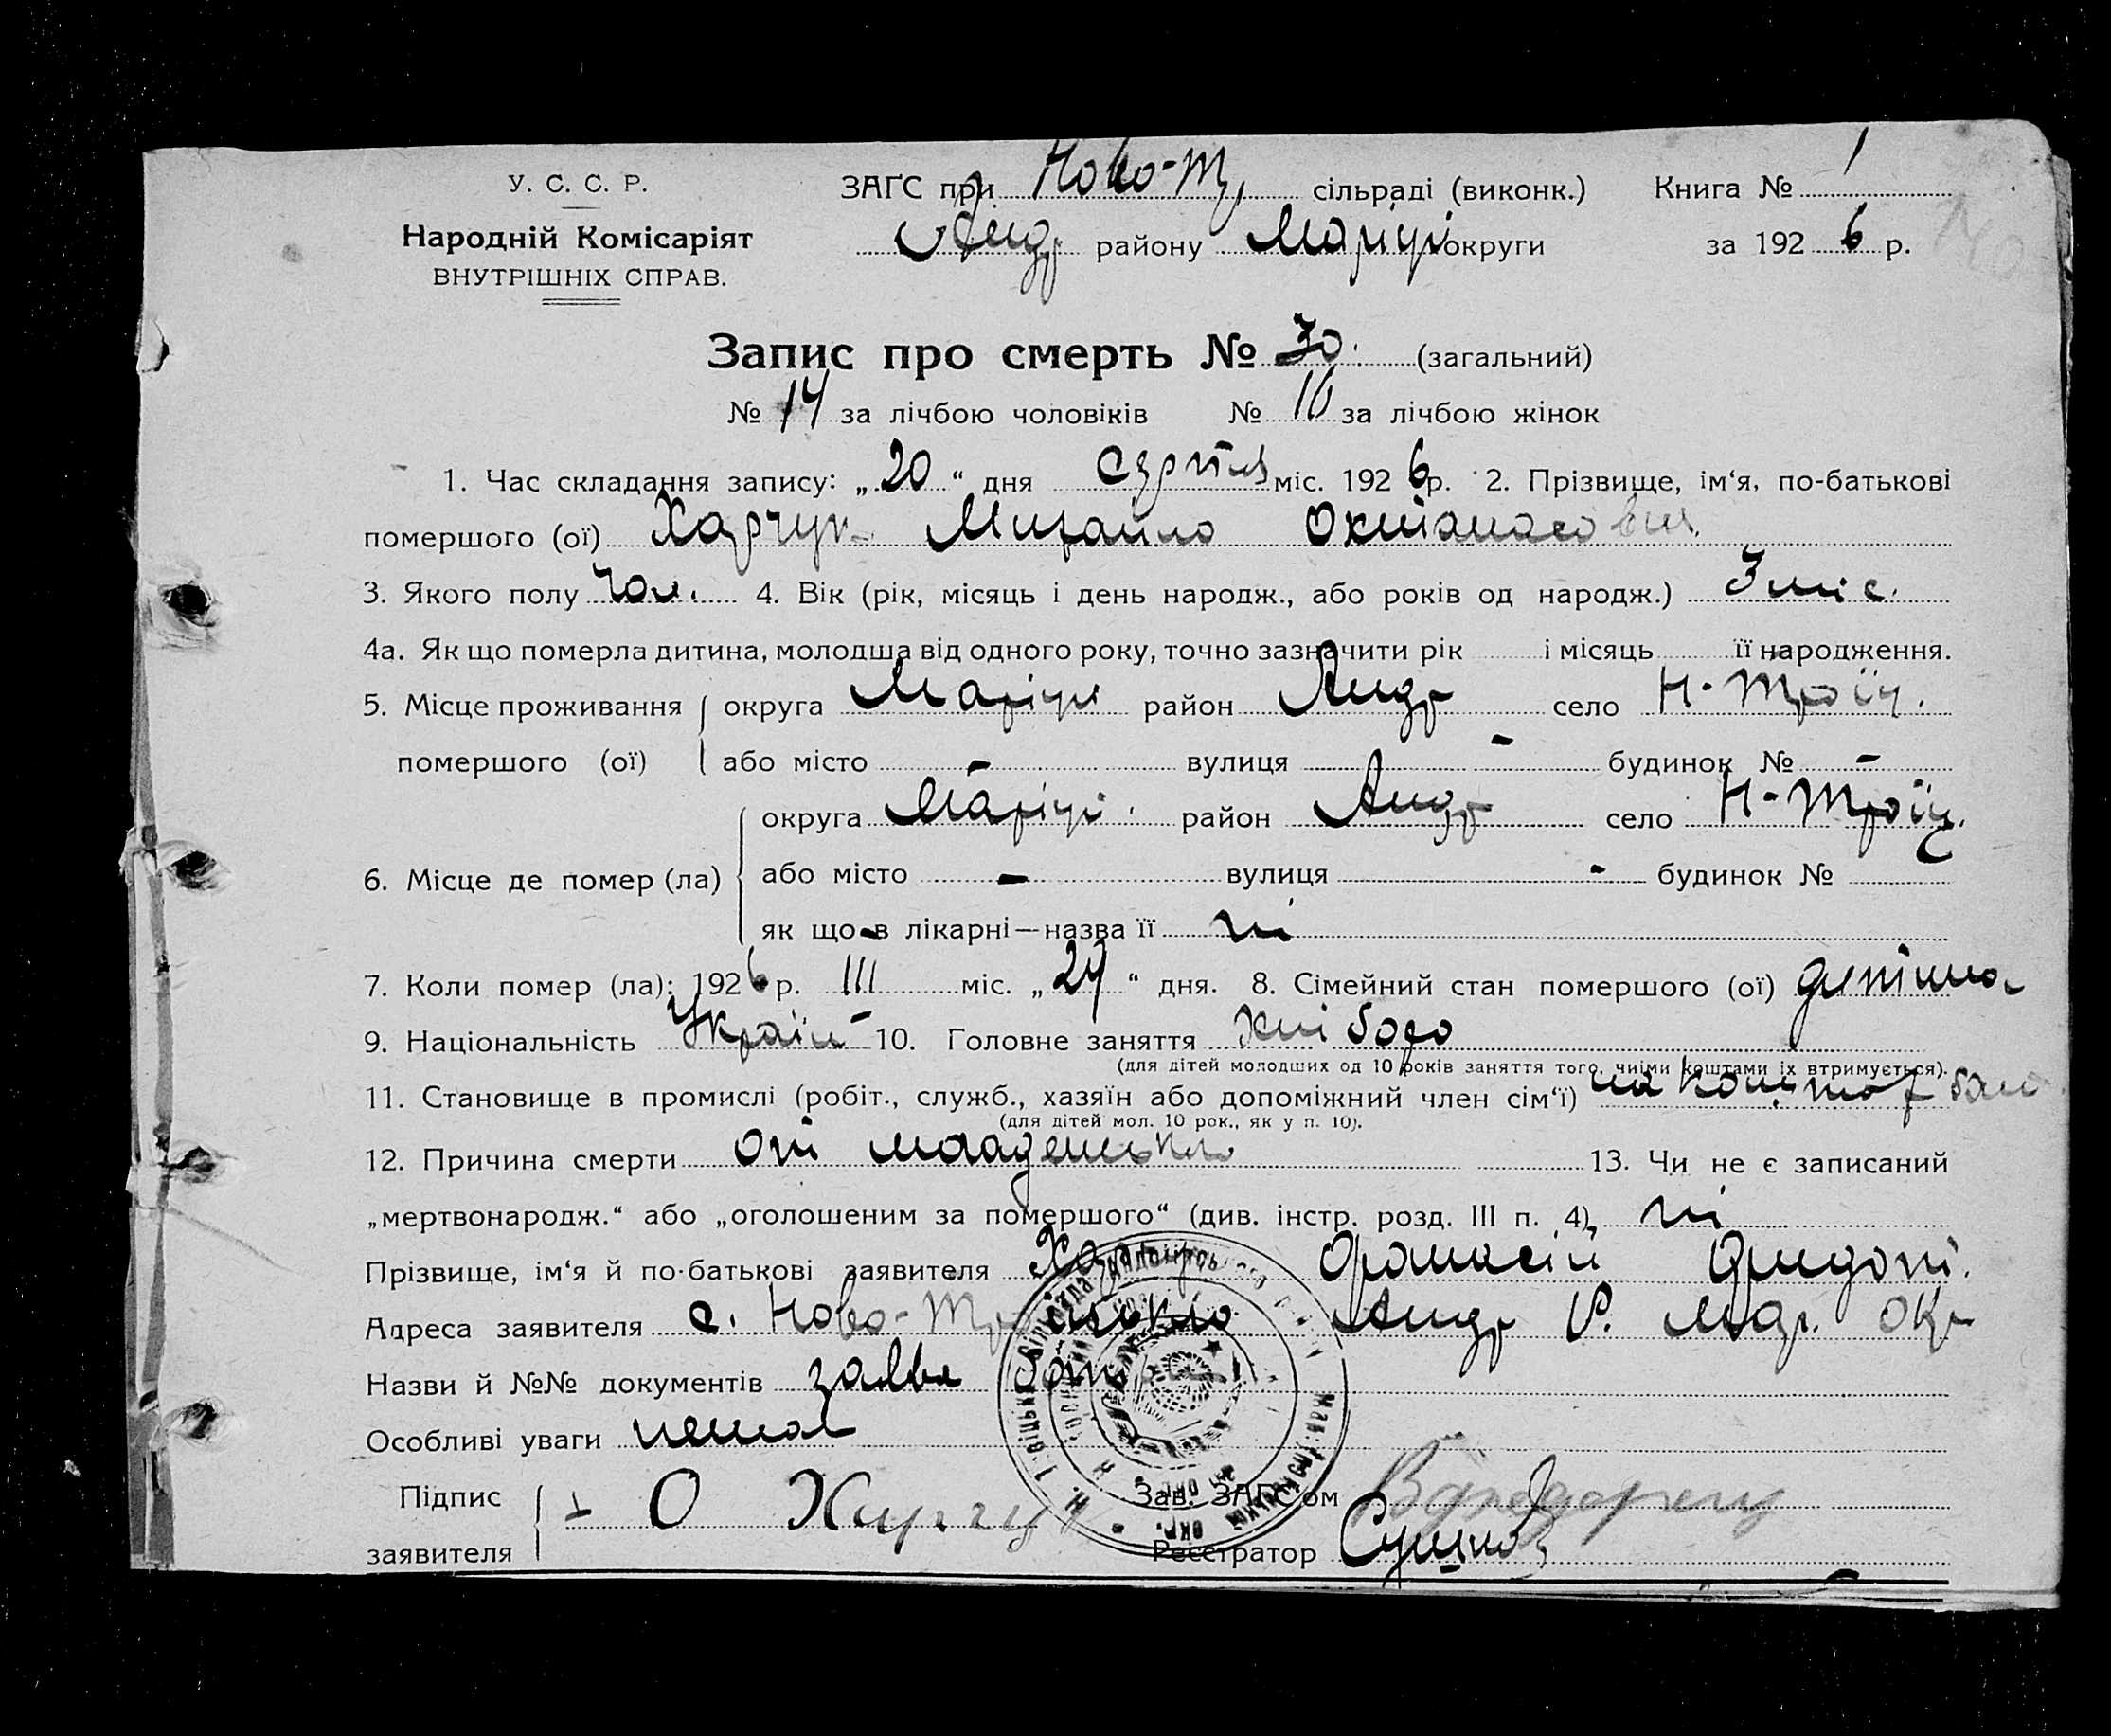 У. С. С. Р.
Народній Комісаріят
ВНУТРІШНІХ СПРАВ.
ЗАГС при Ново-Тр, сільраді (виконк.) Книга № 1
Андр. району Маріуп округи за 1926 р.
Запис про смерть № 30. (загальний)
№ 14 за лічбою чоловіків № 16 за лічбою жінок
1. Час складання запису: „20“ дня серпня міс. 1926 р. 2. Прізвище, ім‘я, по-батькові
помершого (ої) Харчук Михайло
3. Якого полу чол. 4. Вік (рік, місяць і день народж., або років од народж.) 3 міс.
4а. Як що померла дитина, молодша від одного року, точно зазначити рік і місяць її народження.
5. Місце проживання округа Маріуп район Андр село Н-Троїц.
помершого (ої) або місто - вулиця - будинок № -
округа Маріуп. район Андр село Н-Троїц.
6. Місце де помер (ла) або місто - вулиця - будинок №
як що в лікарні — назва її ні
7. Коли помер (ла): 1926 р. III міс. „29“ дня. 8. Сімейний стан помершого (ої) дитина
9. Національність Україн 10. Головне заняття хлібороб
(для дітей молодших од 10 років заняття того, чиїми коштами їх втримується).
11. Становище в промислі (робіт., служб., хазяїн або допоміжний член сім‘ї) на коштах
(для дітей мол. 10 рок., як у п. 10).
12. Причина смерти от младенсько 13. Чи не є записаний
„мертвонародж.“ або „оголошеним за помершого“ (див. інстр. розд. III п. 4), ні
Прізвище, ім‘я й по-батькові заявителя Харчук Афанасій
Адреса заявителя с. Ново-Троїцько Андр Р. Мар. окр
Назви й №№ документів заява
Особливі уваги нема
Підпис О Харчук Зав. ЗАГС‘ом
заявителя Реєстратор